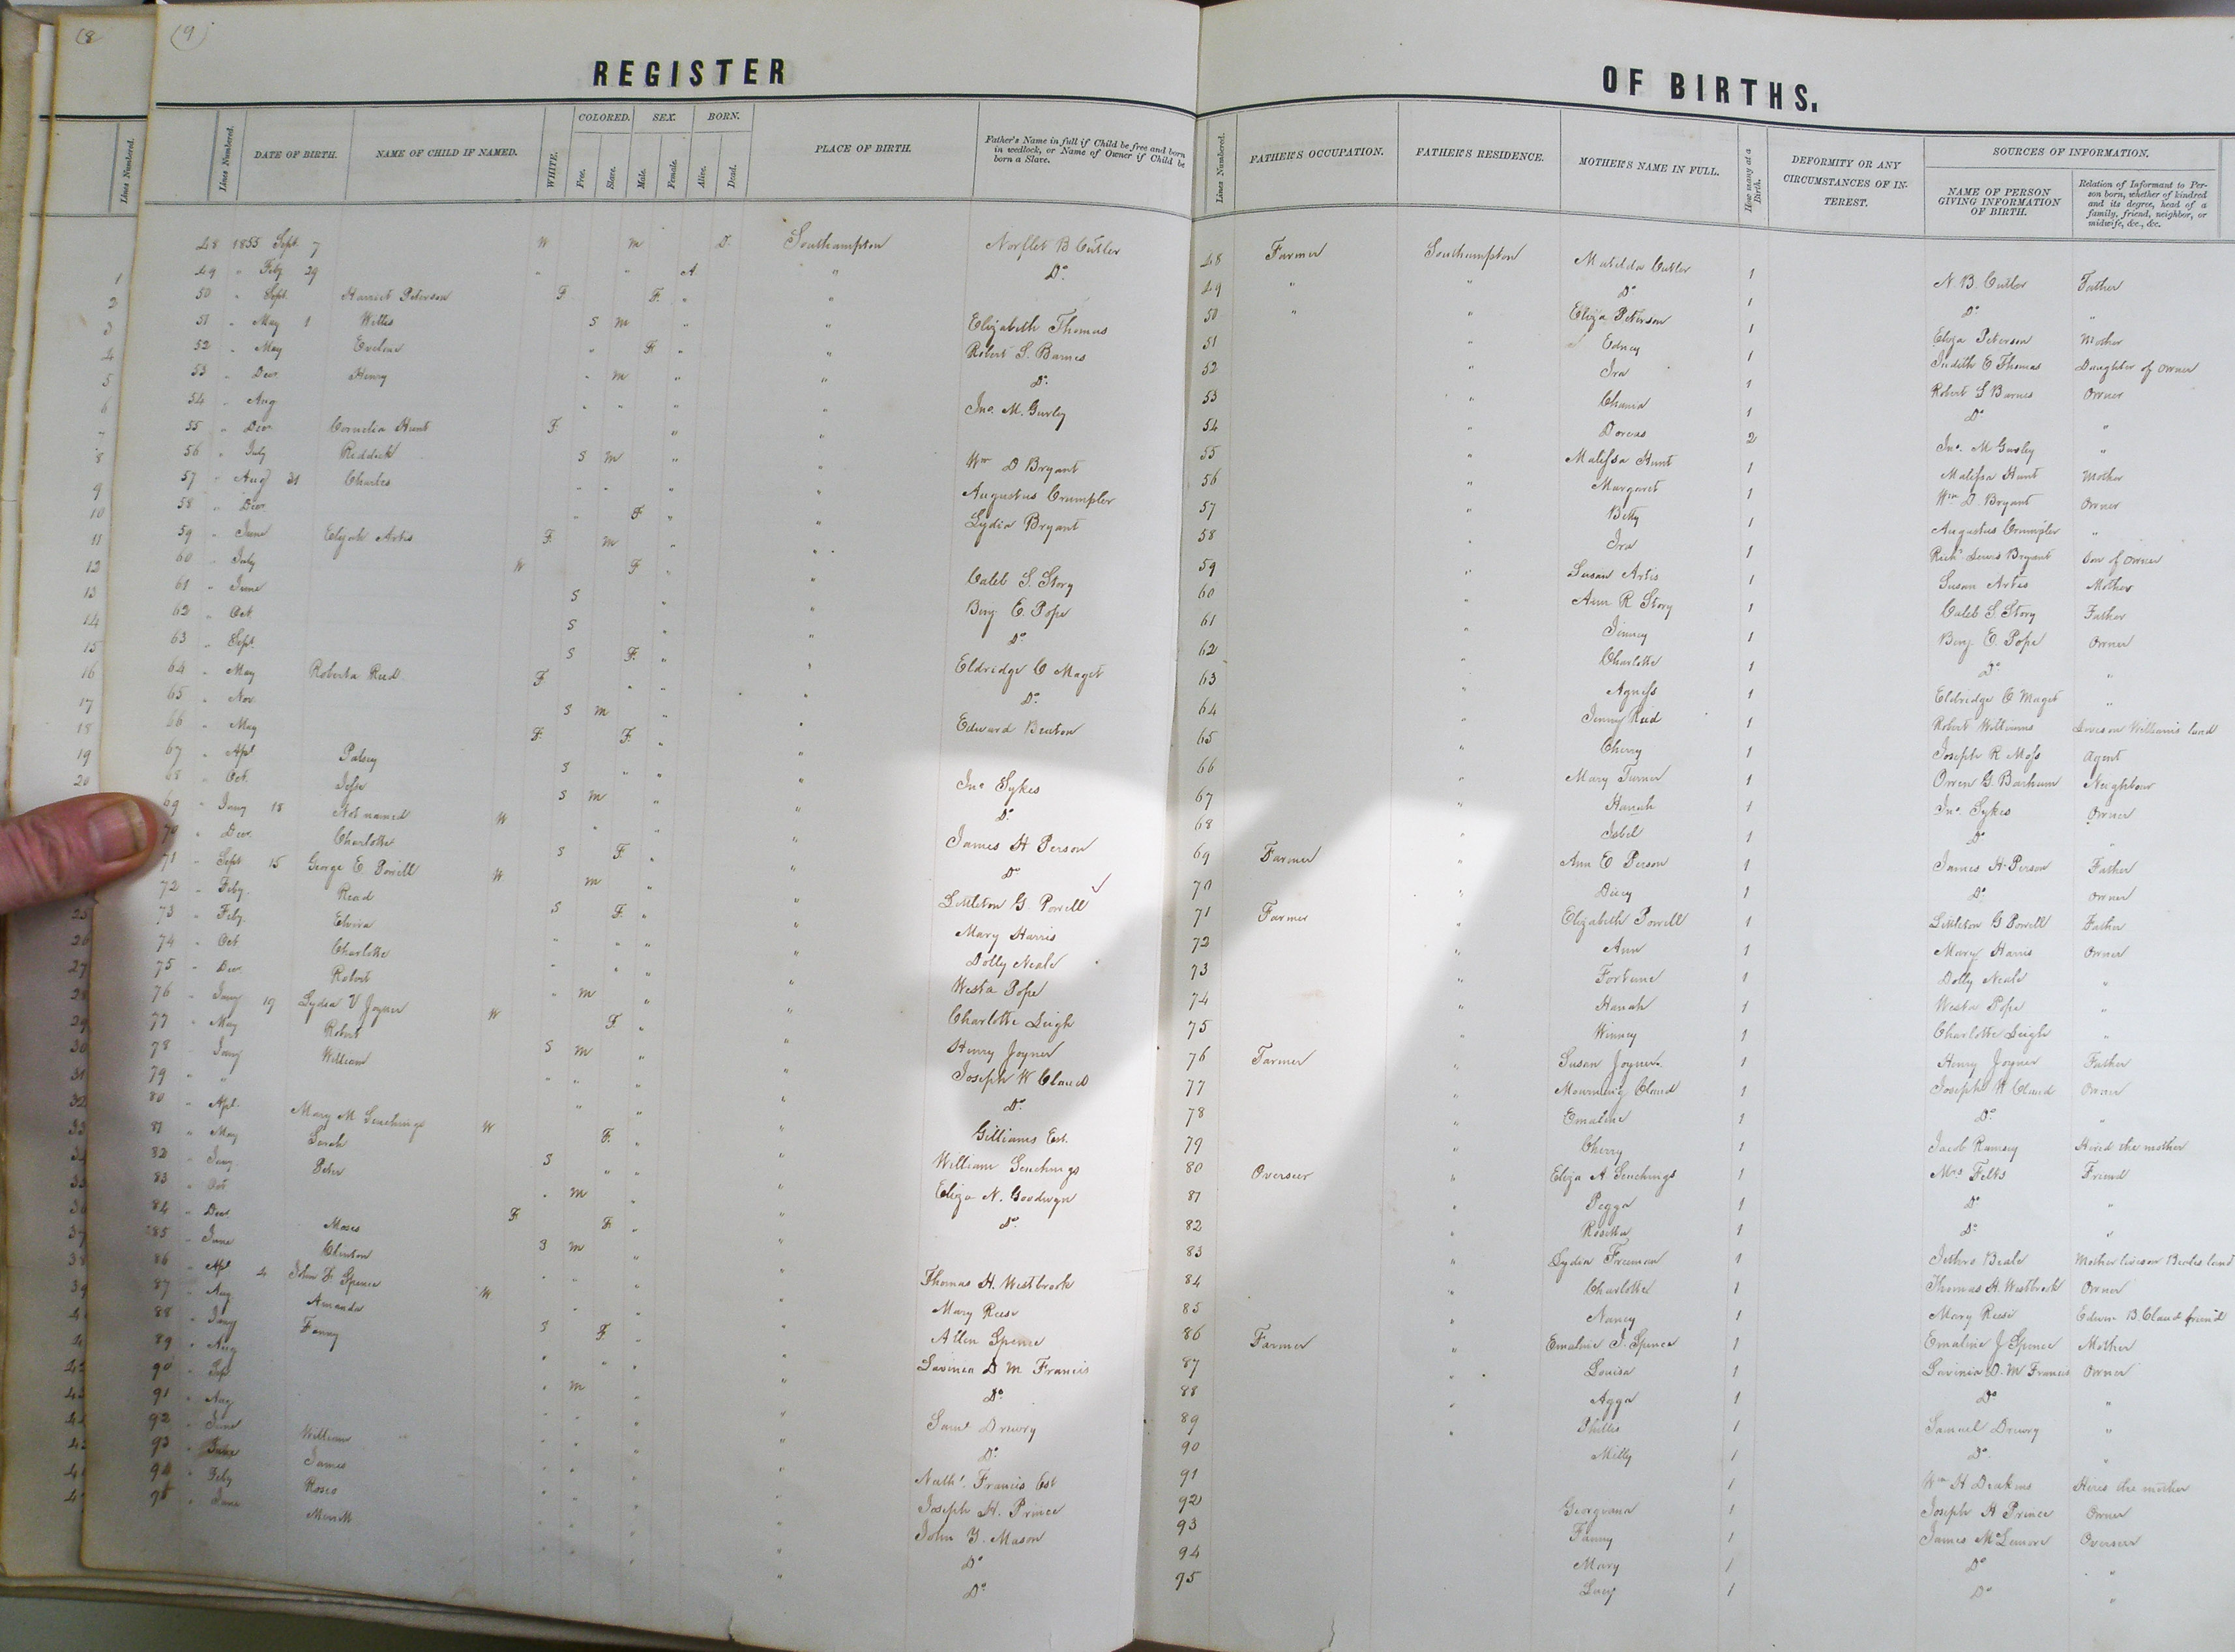 (8
(9)
REGISTER
OF BIRTHS.
Lines Numbered. Lines Numbered. DATE OF BIRTH. NAME OF CHILD IF NAMED. WHITE. COLORED. Free. Slave. SEX. Male. Female. BORN. Alive. Dead. PLACE OF BIRTH. Father's Name in full if Child be free and born in wedlock, or Name of Owner if Child be born a Slave.
Lines Numbered. FATHER'S OCCUPATION. FATHER'S RESIDENCE. MOTHER'S NAME IN FULL. How many at a Birth. DEFORMITY OR ANY CIRCUMSTANCES OF INTEREST. SOURCES OF INFORMATION. NAME OF PERSON GIVING INFORMATION OF BIRTH. Relation of Informant to Person born, whether of kindred and its degree, head of a family, friend, neighbor, or midwife, &c., &c.
48 1855 Sept. 7 W M D. Southampton Norflet B Cutler 48 Farmer Southampton Matilda Cutler 1 N. B. Cutler Father
49 " Feby 29 " " A " Do. 49 " " Do 1 Do "
50 " Sept. Harriet Peterson F F. " " 50 " " Eliza Peterson 1 Eliza Peterson Mother
51 " May 1 Willis S M " " Elizabeth Thomas 51 " Edney 1 Judith E Thomas Daughter of owner
52 " May Eveline " F " " Robert S. Barnes 52 " Ira 1 Robert S Barnes Owner
53 " Decr Henry " M " " Do. 53 " 1 Do "
54 " Aug " " " " Jno. M. Gurley 54 " Dorcas 2 Jno. M Gurley "
55 " Decr Cornelia Hunt F " " 55 " Malissa Hunt 1 Malissa Hunt Mother
56 " July Riddick S M " " Wm D Bryant 56 " Margaret 1 Wm D Bryant Owner
57 " Aug 31 Charles " " " " Augustus Crumpler 57 " Betty 1 Augustus Crumpler "
58 " Decr " F " " Lydia Bryant 58 " Ira 1 Richd Lewis Bryant Son of owner
59 " June Elijah Artis F. M " " 59 " Susan Artis 1 Susan Artis Mother
60 " July W F " " Caleb S. Story 60 " Ann R Story 1 Caleb S. Story Father
61 " June S " " Benj. E. Pope 61 " Jinney 1 Benj. E. Pope Owner
62 " Oct S " " Do 62 " Charlotte 1 Do "
63 " Sept. S F. " " Eldridge C Maget 63 " Agness 1 Eldridge C Maget "
64 " May Roberta Reed F " " " Do. 64 " Jenny Reed 1 Robert Williams Lives on Williams land
65 " Nov. S M " " Edward Beaton 65 " Cherry 1 Joseph R Moss Agent
66 " May F. F. " " 66 " Mary Turner 1 Orren G. Barham Neighbour
67 " Apl Patsey S " " " Jno Sykes 67 " Hanah 1 Jno. Sykes Owner
68 " Oct. Jesse S M " " Do. 68 " Isbel 1 Do "
69 " Jany 18 Not named W " " " James H Person 69 Farmer " Ann E Person 1 James H. Person Father
70 " Decr. Charlotte S F. " " Do 70 " Dicey 1 Do Owner
71 " Sept 15 George E Powell W M " " Littleton G. Powell 71 Farmer " Elizabeth Powell 1 Littleton G Powell Father
72 " Feby. Read S F. " " Mary Harris 72 " Ann 1 Mary Harris Owner
73 " Feby. Elvira " " " " Dolly Neale 73 " Fortune 1 Dolly Neale "
74 " Oct Charlotte " " " " Westa Pope 74 " Hanah 1 Westa Pope "
75 " Decr. Robert " M " " Charlotte Leigh 75 " Winney 1 Charlotte Leigh "
76 " Jany 19 Lydia V Joyner W F. " " Henry Joyner 76 Farmer " Susan Joyner 1 Henry Joyner Father
77 " May Robert S M " " Joseph W Claud 77 " Mourning Claud 1 Joseph W Claud Owner
78 " Jany William " " " " Do. 78 " Emaline 1 Do "
79 " " " " " Gilliams Est. 79 " Cherry 1 Jacob Ramsey Hired the mother
80 " Apl. Mary M W F. " " William 80 Overseer " Eliza A 1 Mrs Felts Friend
81 " May Sarah S " " " Eliza N. Goodwyn 81 " Pegga 1 Do "
82 " Jany Peter " M " " Do. 82 " 1 Do "
83 " Oct F. F. " " 83 " Lydia Freeman 1 Jethro Beale Mother lives on Beales land
84 " Decr Moses S M " " Thomas H. Westbrook 84 " Charlotte 1 Thomas H. Westbrook Owner
85 " June Clinton " " " " Mary Reese 85 " Nancy 1 Mary Reese Edwin B. Claud friend
86 " Apl 4 John F Spence W " " " Allen Spence 86 Farmer " Emaline J. Spence 1 Emaline J Spence Mother
87 " Aug Amanda S F " " Lavinia D M Francis 87 " Louisa 1 Lavinia D. M Francis Owner
88 " Jany Fanny " " " " Do 88 " Agga 1 Do "
89 " Aug " M " " Saml Drewry 89 " Phillis 1 Samuel Drewry "
90 " " " " " Do. 90 Milly 1 Do. "
91 " Aug " " " " Nathl. Francis Est 91 1 Wm H Deakins Hires the mother
92 " June William " " " " Joseph H. Prince 92 Georgiana 1 Joseph H Prince Owner
93 " June James " " " " John Y. Mason 93 Fanny 1 James McLemore Overseer
94 " Feby Roseo " " " " Do 94 Mary 1 Do "
95 " June " " " " Do. 95 Lucy 1 Do "